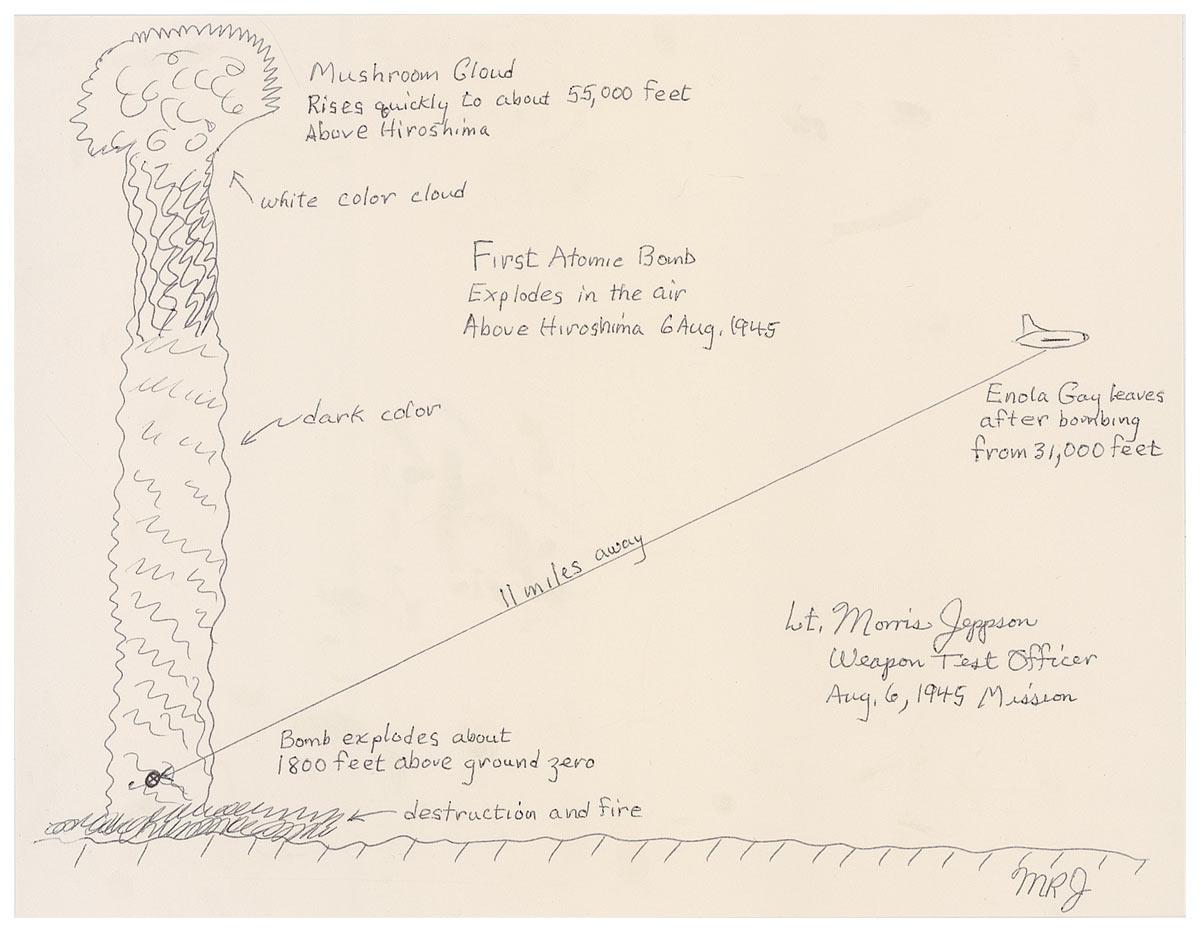 Mushroom Cloud
Rises quickly to about 55,000 feet
Above Hiroshima
white color cloud
First Atomic Bomb
Explodes in the air
Above Hiroshima 6 Aug. 1945
Enola Gay leaves
after bombing
from 31,000 feet
dark color
11 miles away
Lt. Morris Jeppson
Weapon Test Officer
Aug. 6, 1945 Mission
Bomb explodes about
1800 feet above ground zero
destruction and fire
MRJ